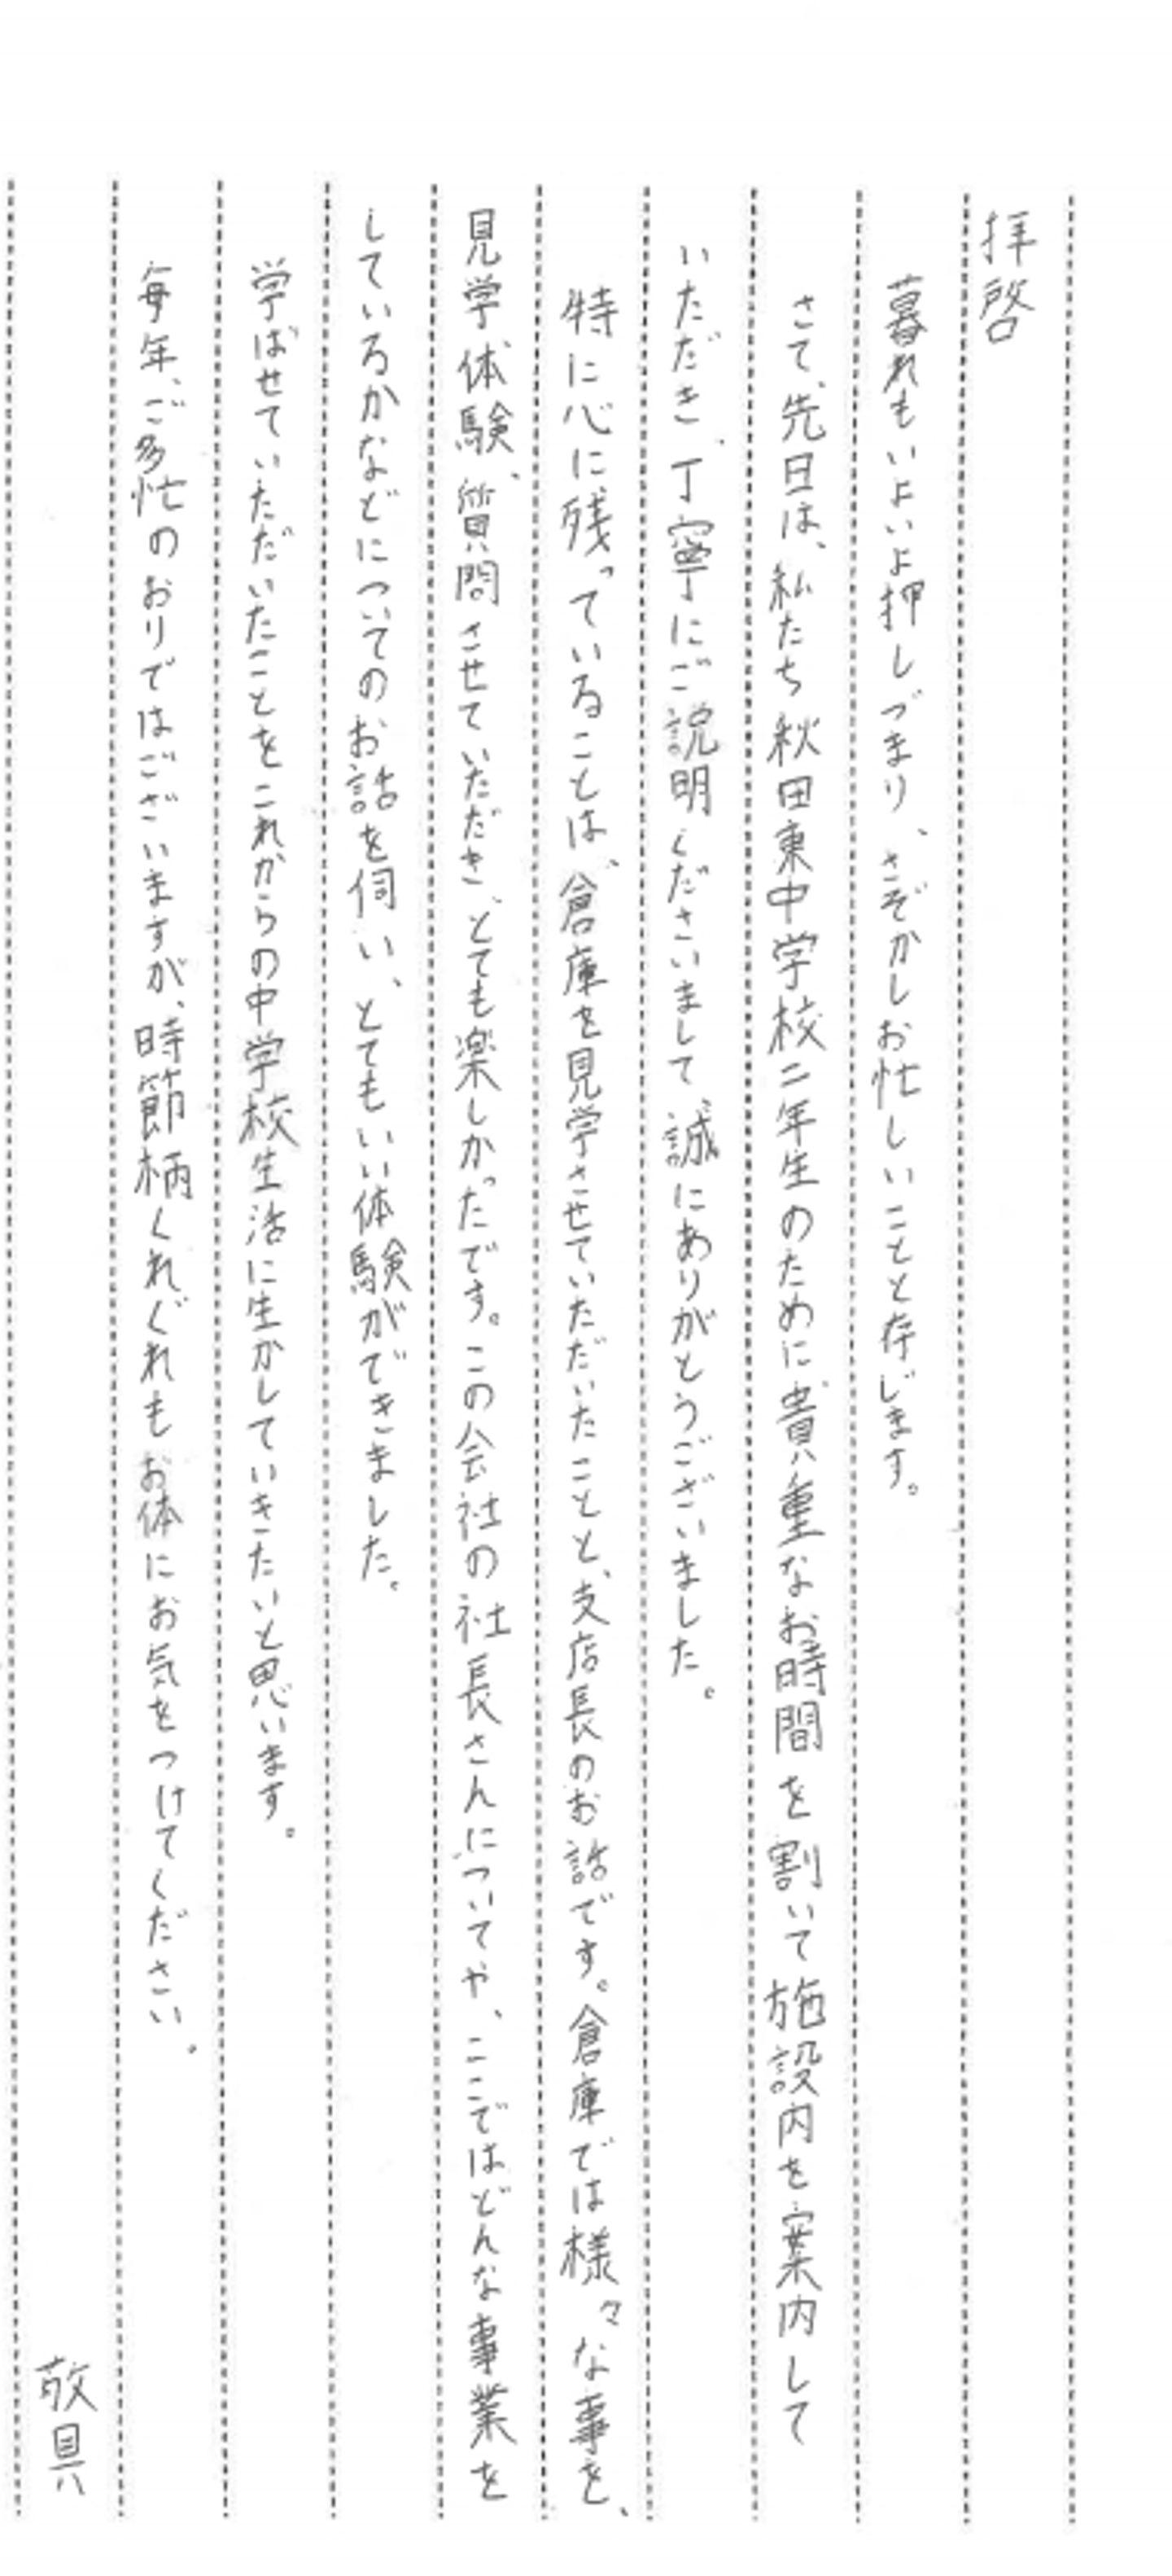 拝啓
暮れもいよいよ押しづまり、さぞかしお忙しいことと存じます。
さて、先日は、私たち秋田東中学校二年生のために貴重なお時間を割いて施設内を案内して
いただき、丁寧にご説明くださいまして、誠にありがとうございました。
特に心に残っていることは、倉庫を見学させていただいたことと、支店長のお話です。倉庫では様々な事を、
見学体験、質問させていただき、とても楽しかったです。この会社の社長さんについてや、ここではどんな事業を
しているかなどについてのお話を伺い、とてもいい体験ができました。
学ばせていただいたことをこれからの中学校生活に生かしていきたいと思います。
毎年、ご多忙のおりではございますが、時節柄くれぐれもお体にお気をつけてください。
敬具